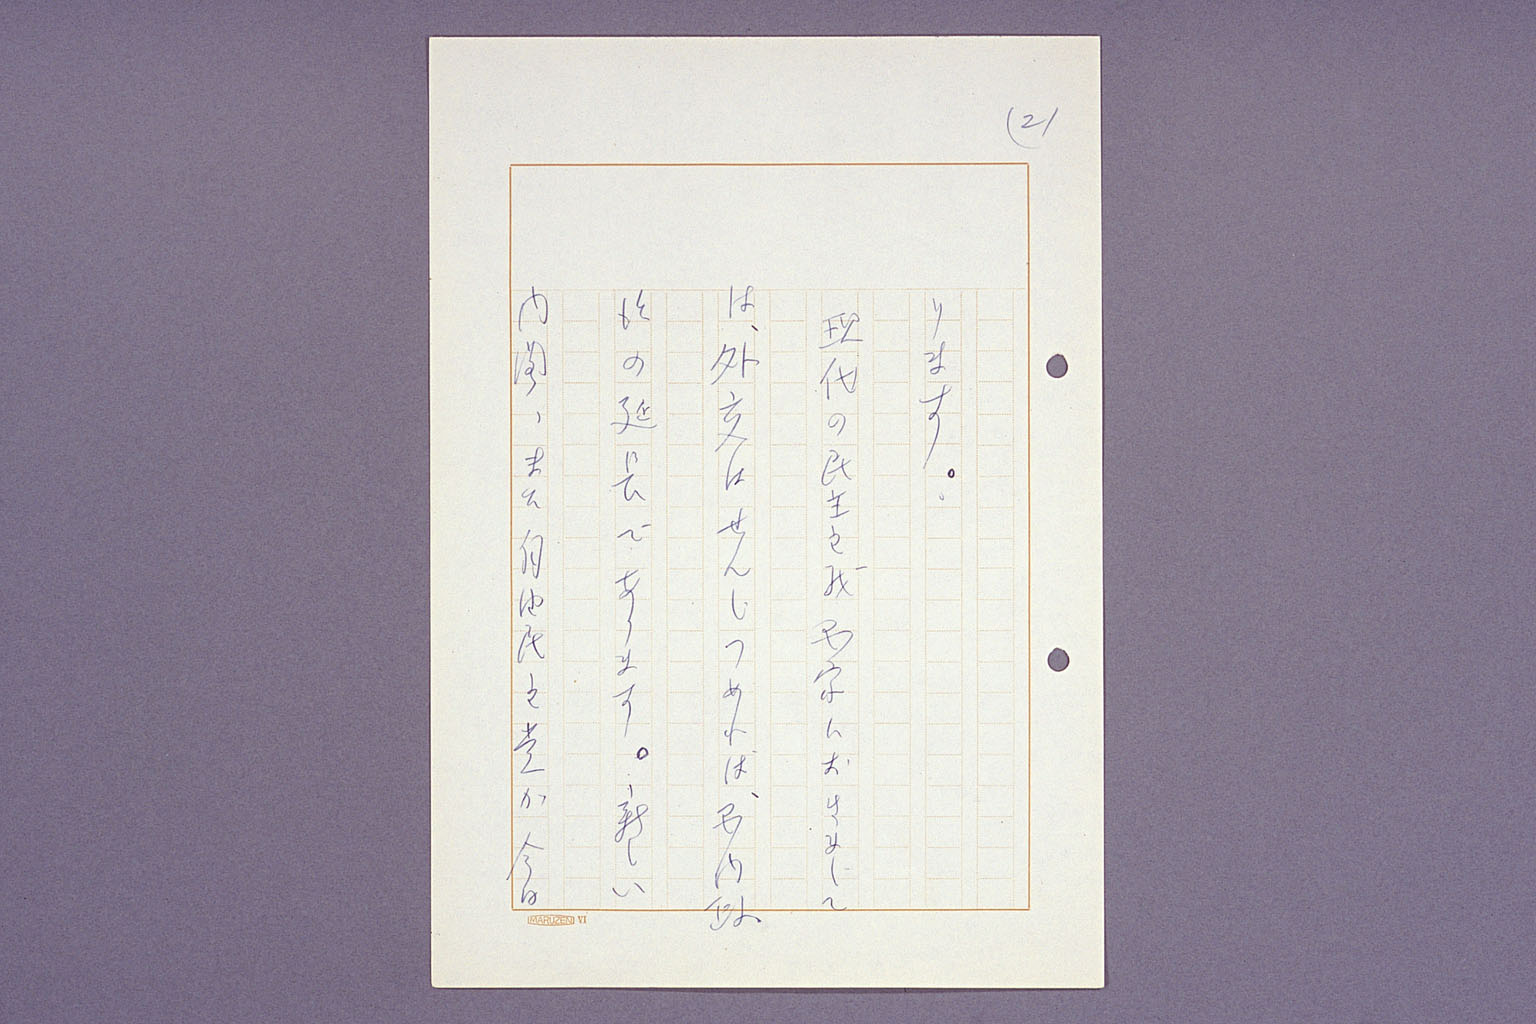 (2)
ります。
現代の民主主義国家におきまして
は、外交はせんじつめれば、国内政
治の延長であります。新しい
内閣、また自由民主党が今日
MARUZEN VI